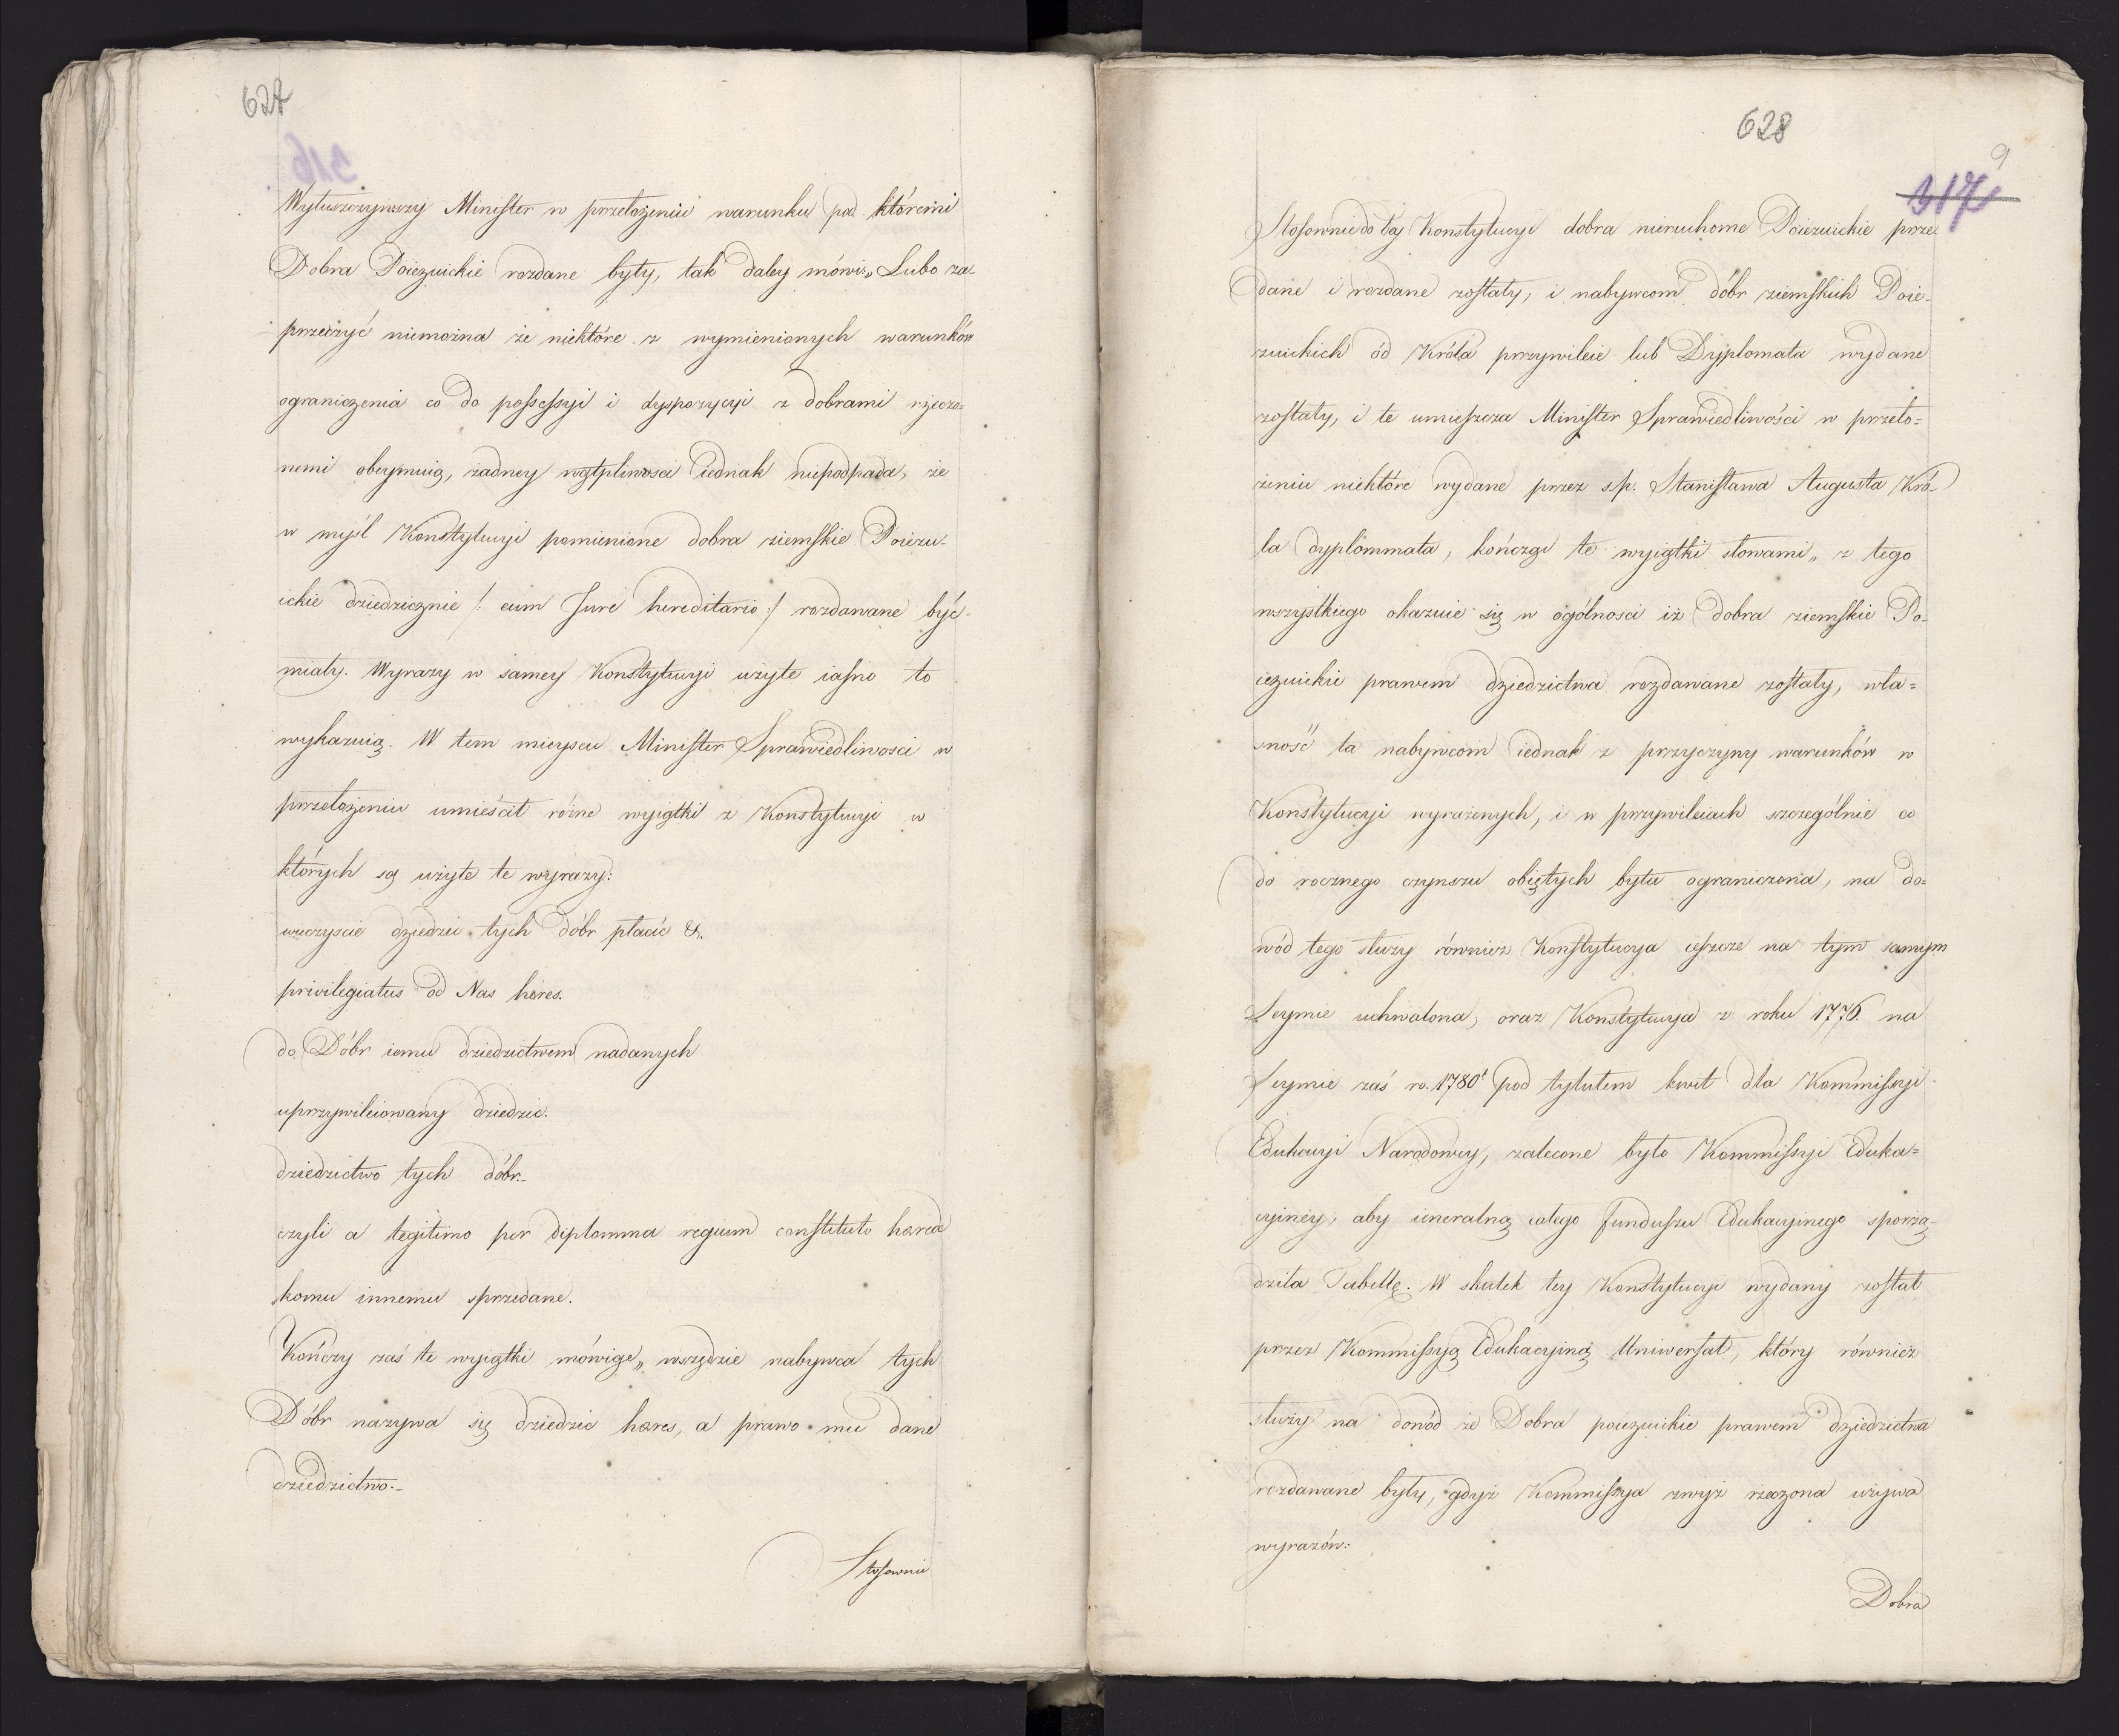 627
316
Wyłuszczywszy Minister w przełożeniu warunku pod któremi
Dobra Poiezuickie rozdane były, tak daley mówi „ Lubo za-
przeczyć niemożna że niektóre z wymienionych warunków
ograniczenia co do possessyi i dyspozycyi z dobrami rzeczo-
nemi obeymuią, żadney wątpliwosci iednak niepodpada, że
w myśl Konstytucyi pomienione dobra ziemskie Poiezu-
ickie dziedzicznie /: cum Jure hereditario :/ rozdawane być
miały. Wyrazy w samey Konstytucyi użyte iasno to
wykazuią. W tem mieyscu Minister Sprawiedliwosci w
przełożeniu umieścił różne wyiątki z Konstytucyi w
których są użyte te wyrazy:
wieczyscie dziedzic tych dóbr płacić &.
privilegiatus od Nas hæres.
do Dóbr iemu dziedzictwem nadanych
uprzywileiowany dziedzic.
dziedzictwo tych dóbr.-
czyli a legitimo per diplomma regium constituto hærede
komu innemu sprzedane.
Kończy zaś te wyiątki mówiąc „ wszędzie nabywca tych
Dóbr nazywa się dziedzic hæres, a prawo mu dane
dziedzictwo.-
Stosownie
628
9
317
Stosownie do tey Konstytucyi dobra nieruchome Poiezuickie prze-
dane i rozdane zostały, i nabywcom dóbr ziemskich Poie-
zuickich ód Króla przywileie lub Dyplomata wydane
zostały, i te umieszcza Minister Sprawiedliwości w przeło=
żeniu niektóre wydane przez s.p. Stanisława Augusta Kró-
la dyplommata, kończąc te wyiątki słowami „ z tego
wszystkiego okazuie się w ogólnosci iż dobra ziemskie Po-
iezuickie prawem dziedzictwa rozdawane zostały, wła=
sność ta nabywcom iednak z przyczyny warunków w
Konstytucyi wyrażonych, i w przywileiach szczególnie co
do rocznego czynszu obiętych była ograniczona, na do=
wód tego służy również Konstytucya ieszcze na tym samym
Seymie uchwalona, oraz Konstytucya z roku 1776. na
Seymie zaś ro. 1780t pod tytułem kwit dla Kommissyi
Edukacyi Narodowey, zalecone było Kommissyi Eduka=
cyiney, aby ieneralną całego funduszu Edukacyinego sporzą-
dziła Tabellę. W skutek tey Konstytucyi wydany został
przez Kommissyą Edukacyiną Uniwersał, który również
służy na dowód że Dobra poiezuickie prawem dziedzictwa
rozdawane były, gdyż Kommissya zwyż rzeczona używa
wyrazów:
Dobra